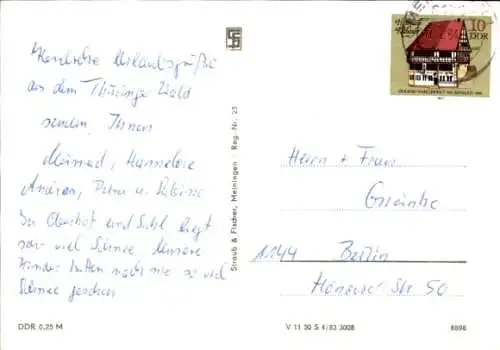 Herzliche Urlaubsgrüße
aus dem Thüringer Wald
senden Ihnen
Meinrad, Hannelore
Andrea, Petra u.
In Oberhof und Suhl liegt
sehr viel Schnee. Unsere
Kinder hatten noch nie so viel
Schnee gesehen
DDR 0,25 M
Straub & Fischer, Meiningen Reg.-Nr. 23
10
DDR
Herrn + Frau
1144 Berlin
Hanower Str 50
V 11 50 S 4/83 3008
8898